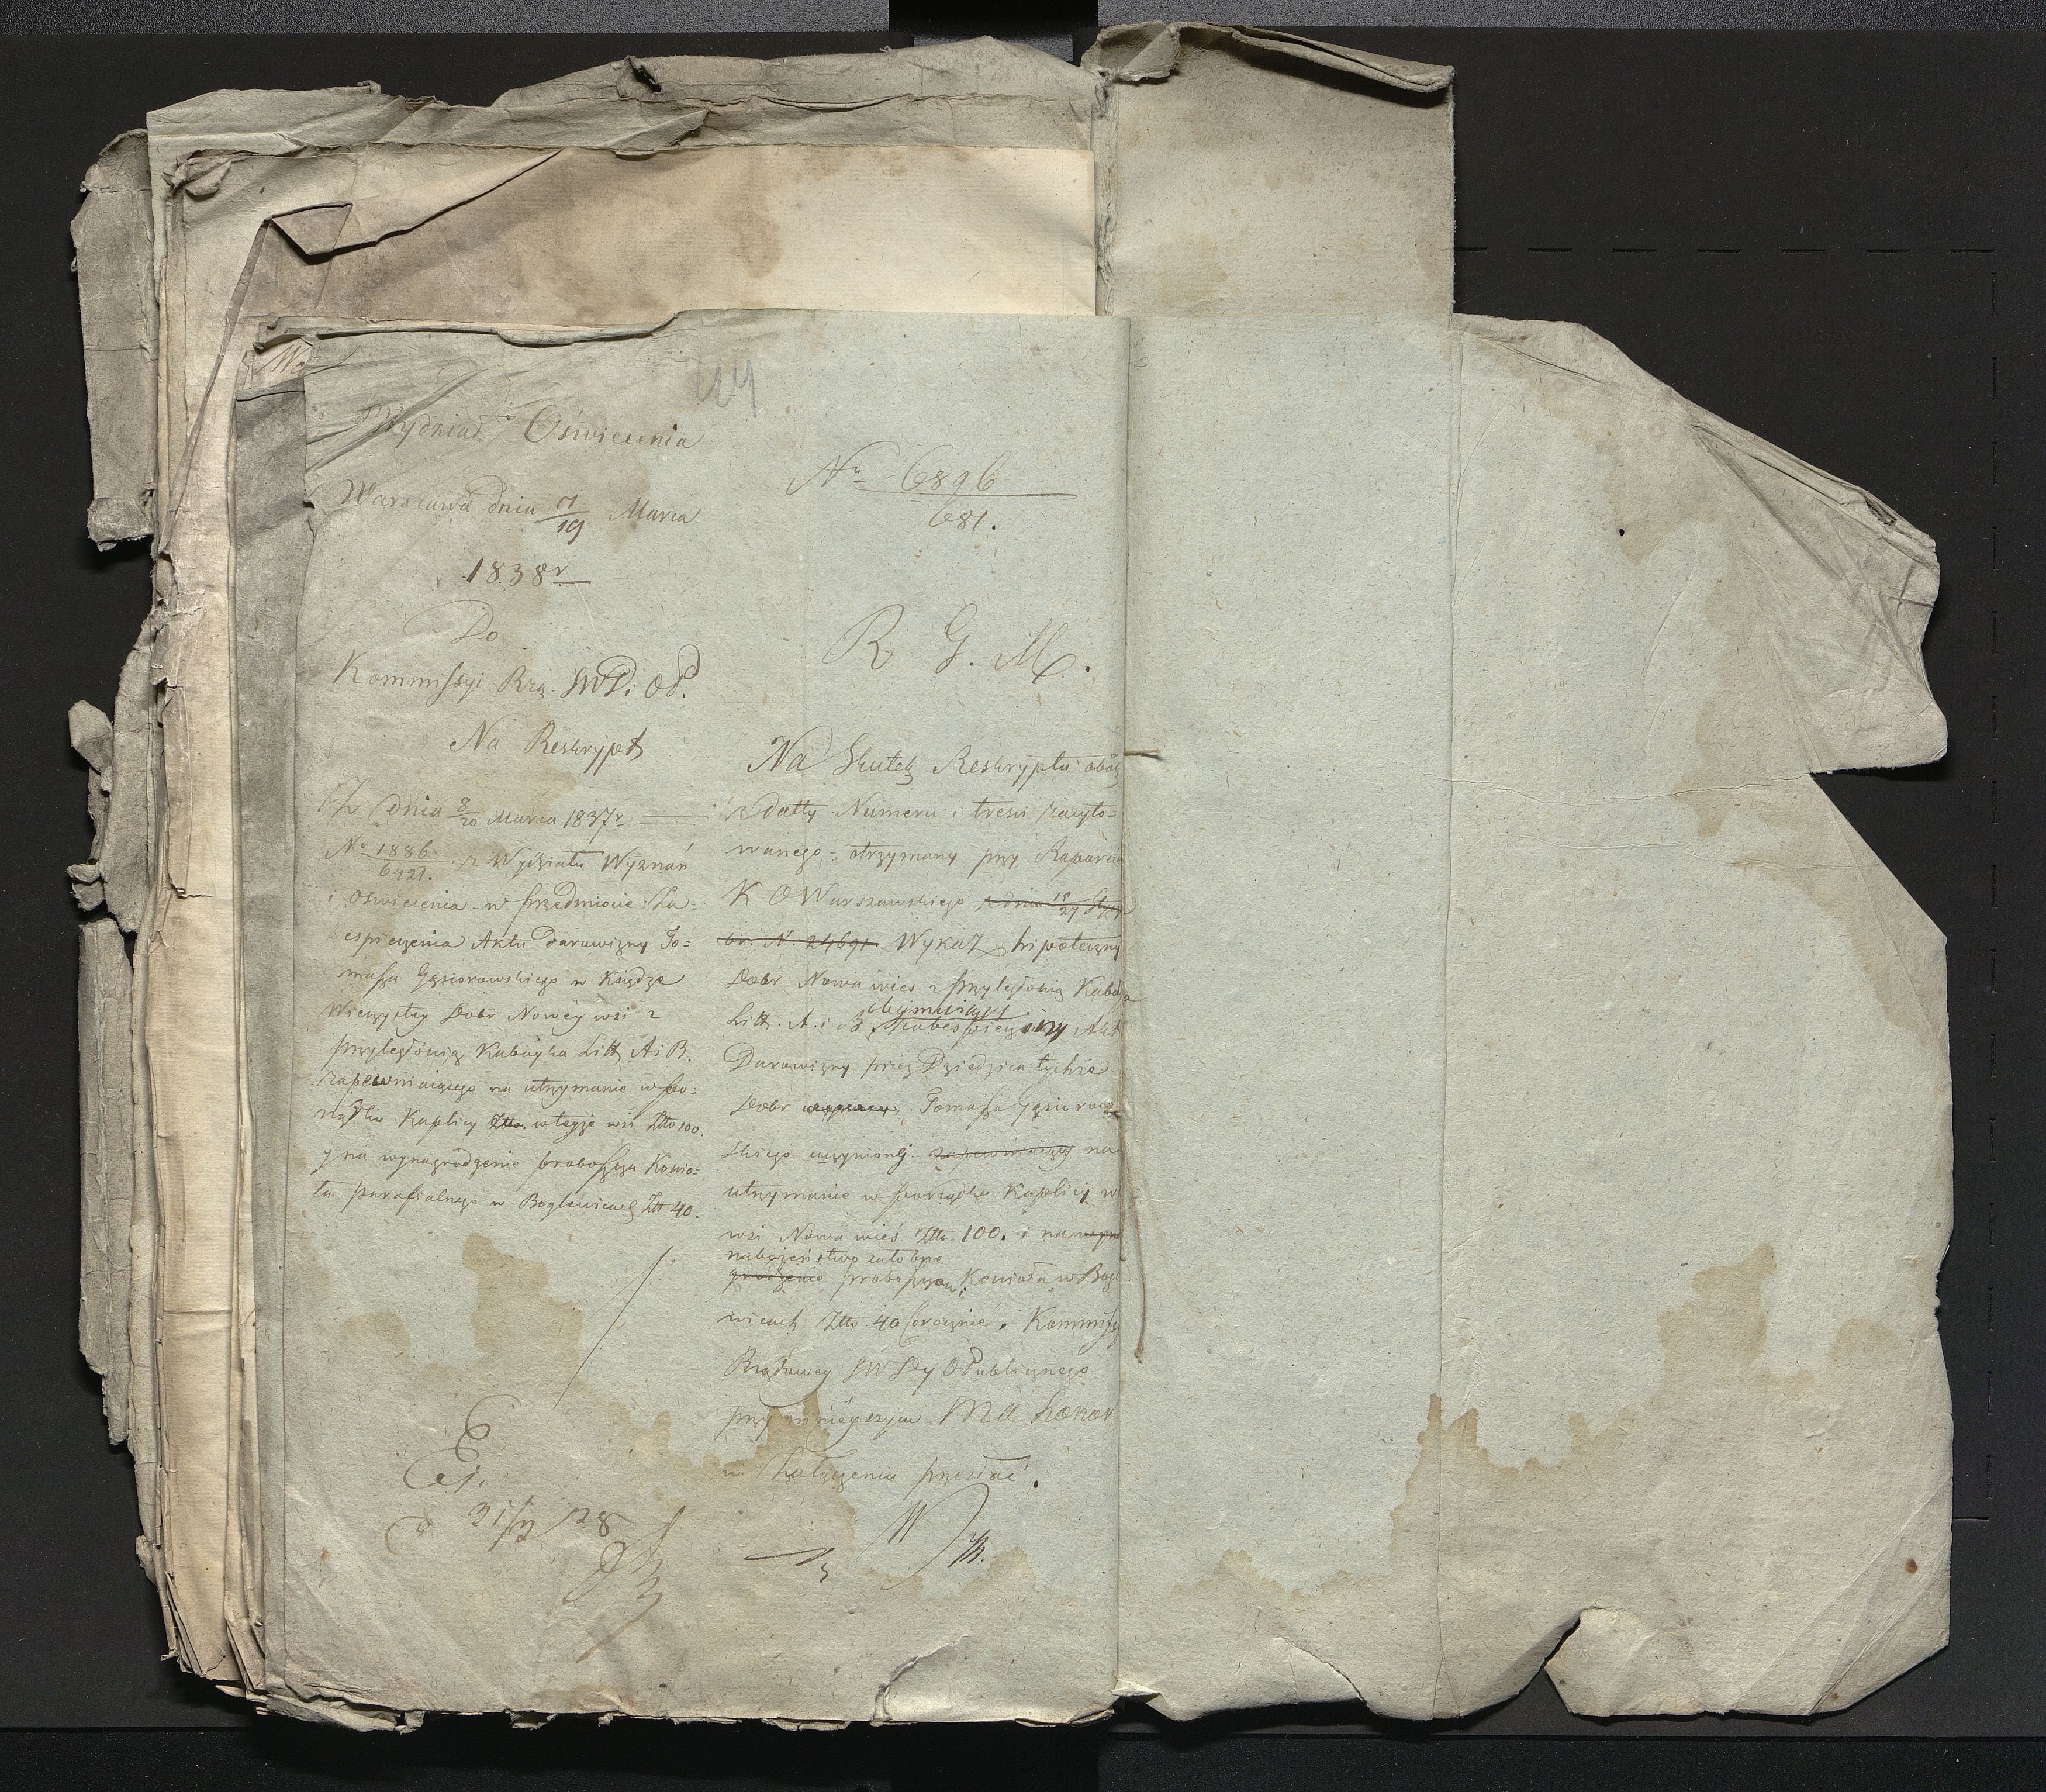 Wydział Oświecenia
Warszawa dnia 7/19 Marca
1838 r
Do
Kommissyi Rzą. SWD. i OP.
Na Reskrypt
Z dnia 8/20 Marca 1837 r.
No 1886/6421. z Wydziału Wyznań
i Oświecenia w przedmiocie Za=
bespieczenia Aktu Darowizny To=
masza Gąsiorowskiego w Księdze
Wieczystey Dóbr Nowey wsi z
przyległością Kabayka Litt A i B.
zapewniaiącego na utrzymanie w po=
rządku Kaplicy w teyże wsi Złto 100.
y na wynagrodzenie proboszcza Kościo=
ła parafialnego w Boglewicach Złt 40.
No 6896
681.
R. G. M.
Na Skutek Reskryptu obok
z datty Numeru i treści zacyto=
wanego otrzymany przy Raporcie
K O Warszawskiego z dnia 15/27
br. N. 24691 Wykaz hipoteczny
Dóbr Nowa wieś z przyległością Kabayka
obeymuiący
Litt. A. i B. zabespieczony Akt
Darowizny przez Dziedzica tychże
Dóbr Tomasza Gąsiorow
skiego uczynioney zapewniaiący na
utrzymanie w porządku Kaplicy w
wsi Nowa wieś Złto 100. i na
nabożeństwo żałobne
grodzenie proboszczowi Kościoła w Bogl
wicach Złto. 40 corocznie. Kommissyi
Rządowey SWD y OPublicznego
przy ninieyszym Ma honor
w załączeniu przesłać.